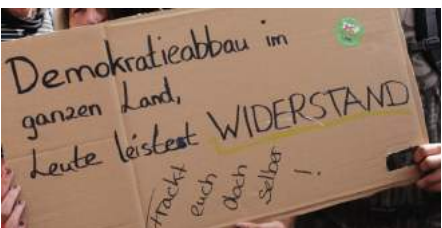 Demokratieabbau im
ganzen Land,
Leute leistet WIDERSTAND
Trackt
euch
doch
selber
!